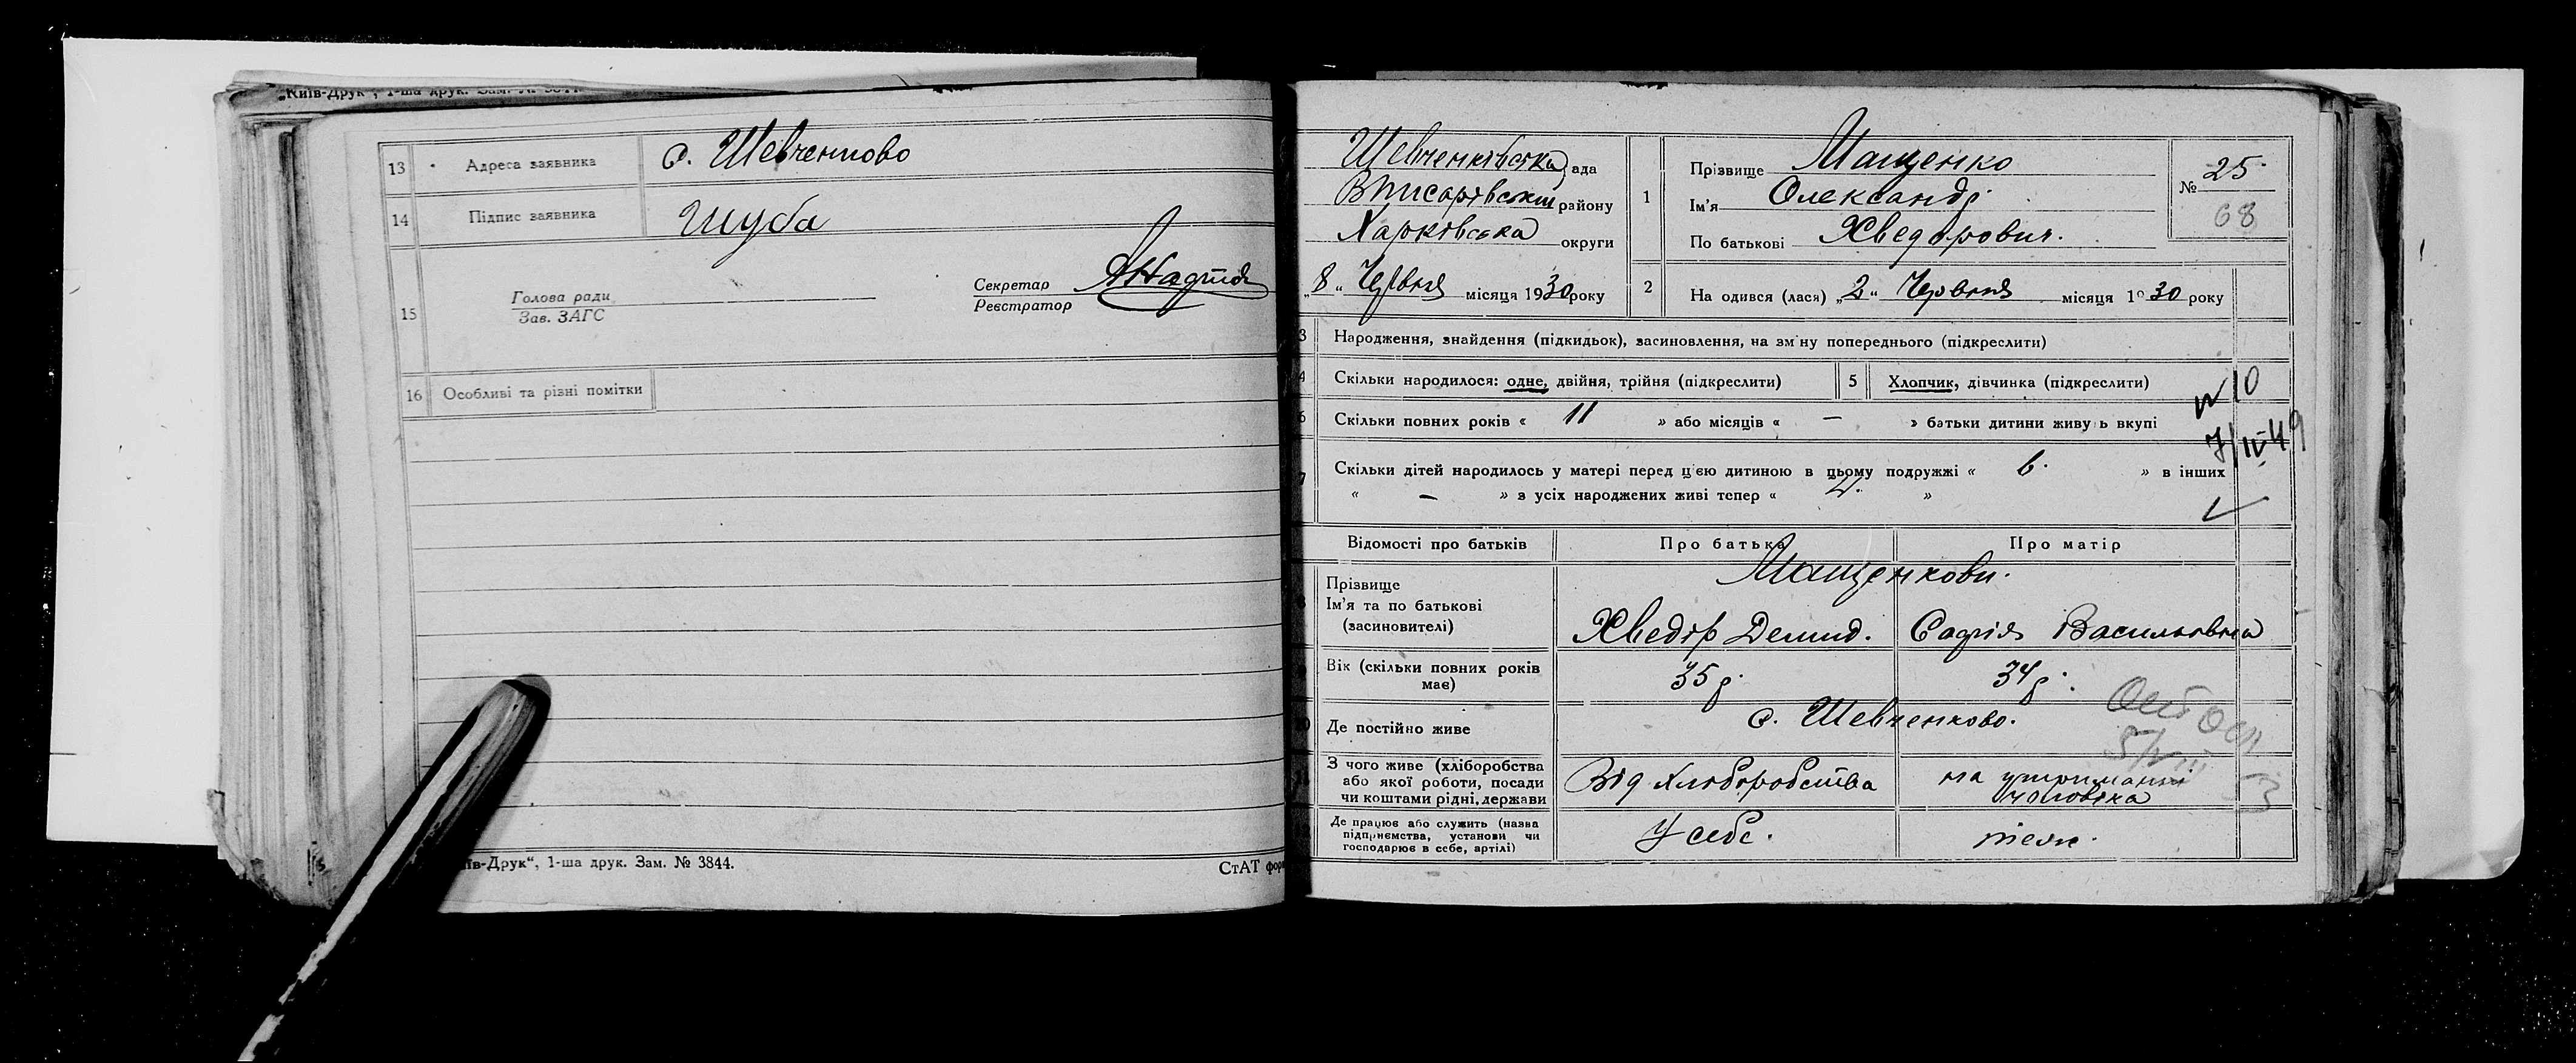 „Київ-Друк", 1-ша друк. Зам. №
13 Адреса заявника с. Шевченково
14 Підпис заявника Шуба
15 Голова ради
Зав. ЗАГС
Секретар
Реєстратор
16 Особливі та різні помітки
їв-Друк“, 1-ша друк. Зам. № 3844.
СтАТ фор
Шевченківська рада
Вписарівськ району
Харківська округи
„8“ Червня місяця 1930 року
1 Прізвище Мащенко
Ім'я Олександр
По батькові Хведорович.
№ 25.
68
2 На одився (лася) „2“ Червня місяця 1930 року
3 Народження, знайдення (підкидьок), засиновлення, на зміну попереднього (підкреслити)
4 Скільки народилося: одне, двійня, трійня (підкреслити)
5 Хлопчик, дівчинка (підкреслити)
6 Скільки повних років « 11 » або місяців « — » батьки дитини живуть вкупі
7 Скільки дітей народилось у матері перед цією дитиною в цьому подружжі « 6. » в інших
« — » з усіх народжених живі тепер « »
Відомості про батьків Про батька Про матір
Прізвище
Ім'я та по батькові
(засиновителі)
Мащенкови.
Хведір Демид. Софія Васильовна
Вік (скільки повних років має) 35 р. 34 р.
Де постійно живе с. Шевченково.
З чого живе (хліборобства
або якої роботи, посади
чи коштами рідні, держави
Від хліборобства
на утриманні
чоловіка
Де працює або служить (назва
підприємства, установи чи
господарює в себе, артілі)
У себе.
теж.